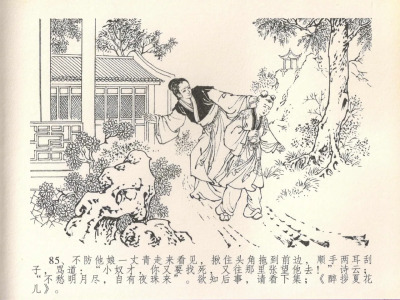 85、不防他娘一丈青走来看见，揪住头角拖到前边，顺手两耳刮
子，骂道：“小奴才，你又要找死，又往那里张望他去！”诗云：
“不愁明月尽，自有夜珠来”。欲知后事，请看下集：《醉拶夏花
儿》。